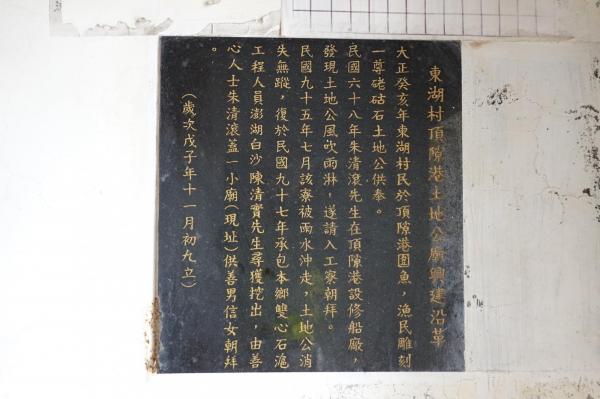 東湖村頂隙港土地公廟興建沿革
大正癸亥年東湖村民於頂隙港圍魚，漁民雕刻
一尊硓𥑮石土地公供奉。
民國六十八年朱清滾先生在頂隙港設修船廠，
發現土地公風吹雨淋，遂請入工寮朝拜。
民國九十五年七月該寮被雨水沖走，土地公消
失無蹤，復於民國九十七年承包本鄉雙心石滬
工程人員澎湖白沙陳清實先生尋獲挖出，由善
心人士朱清滾蓋一小廟(現址)供善男信女朝拜
。
(歲次戊子年十一月初九立)